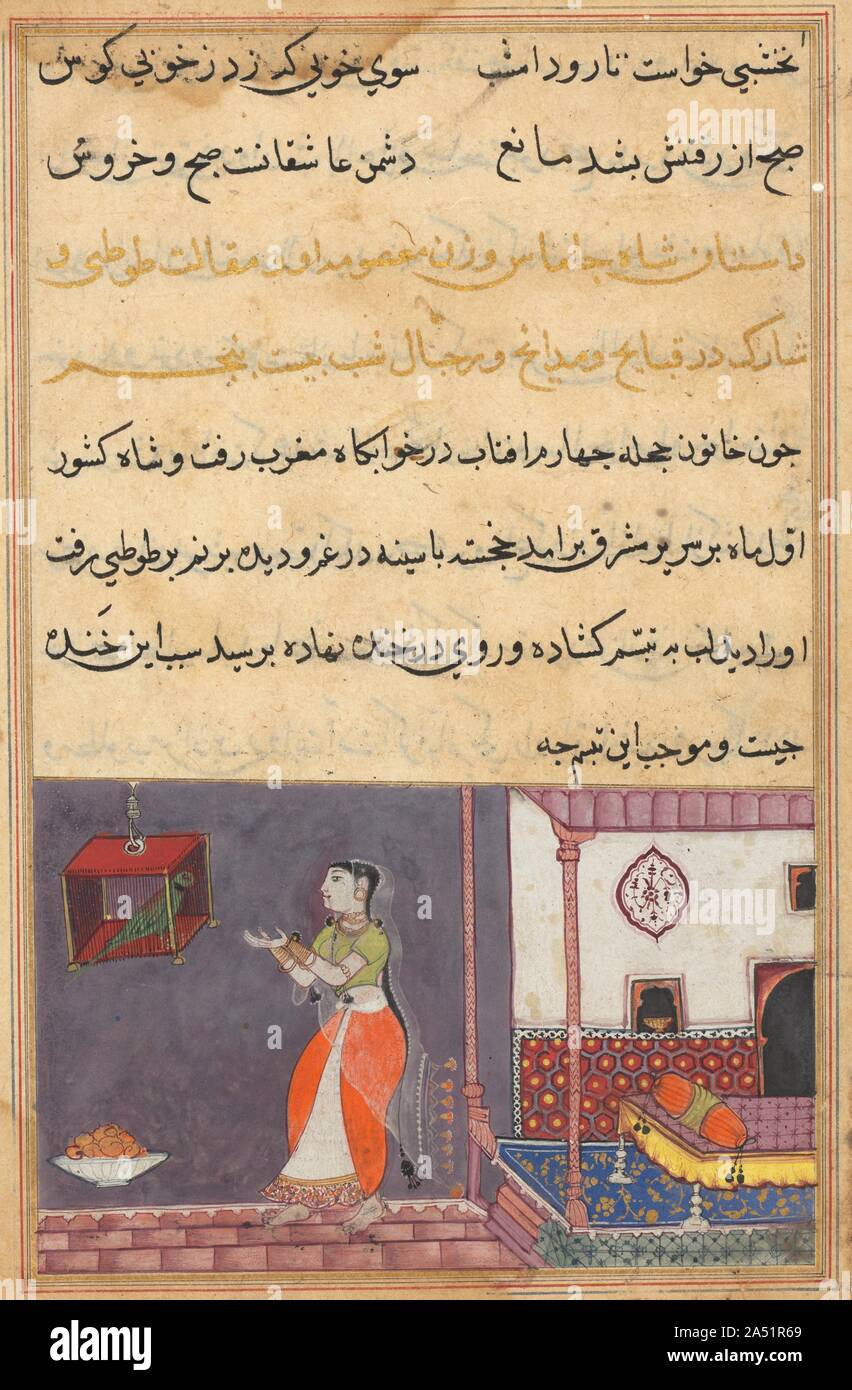 نخشبي خواست تا رود امشب سوي خوبي كه زد ز خوبي كوس
صبح از رفتنش بشد مانع دشمن عاشقانست صبح و خروس
داستان شاه و زن و مقالت طوطي و
شارك در قبايح و مدايح و رجال شب بيست پنجم
جون خاتون حجله جهارم افتاب در خوابكاه مغرب رفت و شاه كشور
اوّل ماه بر سرير مشرق برامد خجسته با سينه در غم و ديده برنم بر طوطي رفت
اورا ديد لب به تبسّم كشاده و روي در خنده نهاده برسيد سبب اين خَنده
جيست و موجب اين تبسم جه
alamy
Image ID: 2A51R69
www.alamy.com